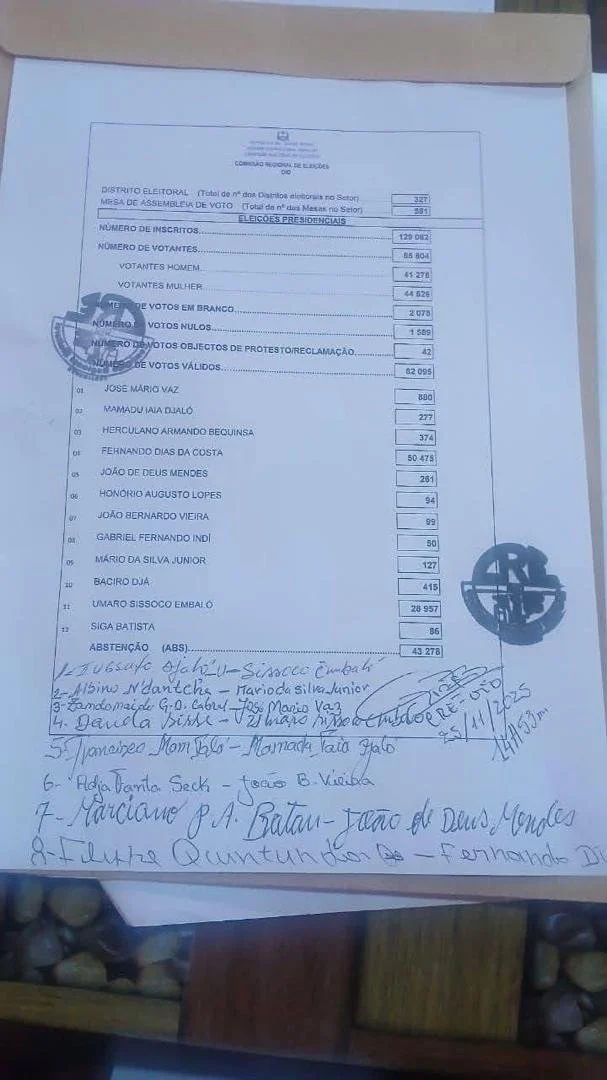 COMISSÃO REGIONAL DE ELEIÇÕES
OIO
DISTRITO ELEITORAL (Total de nº dos Distritos eleitorais no Setor) 327
MESA DE ASSEMBLEIA DE VOTO (Total de nº das Mesas no Setor) 581
ELEIÇÕES PRESIDENCIAIS
NÚMERO DE INSCRITOS 129 082
NÚMERO DE VOTANTES 85 804
VOTANTES HOMEM 41 278
VOTANTES MULHER 44 526
DE VOTOS EM BRANCO 2 078
NÚMERO VOTOS NULOS 1 589
NÚMERO DE VOTOS OBJECTOS DE PROTESTO/RECLAMAÇÃO 42
NÚMERO DE VOTOS VÁLIDOS 82 095
01 JOSÉ MÁRIO VAZ 880
02 MAMADU IAIA DJALÓ 277
03 HERCULANO ARMANDO BEQUINSA 374
04 FERNANDO DIAS DA COSTA 50 475
05 JOÃO DE DEUS MENDES 261
06 HONÓRIO AUGUSTO LOPES 94
07 JOÃO BERNARDO VIEIRA 99
08 GABRIEL FERNANDO INDÍ 50
09 MÁRIO DA SILVA JUNIOR 127
10 BACIRO DJÁ 415
11 UMARO SISSOCO EMBALÓ 28 957
12 SIGA BATISTA 86
ABSTENÇÃO (ABS) 43 278
1- Djaló - Sissoco Embaló
2- Albino N'dantcha - Mario da silva Junior
3- G. D. Cabral - José Mario Vaz
4. Daudá - Umaro Sissoco Embaló
CRE-OIO
25/11/2025
14H53m
5- Francisco Mom Jaló - Mamadu Iaia Djalo
6- Adja Fanta Seck - João B. Vieira
7- Marciano P. A. Batan - João de Deus Mendes
8- - Fernando Di